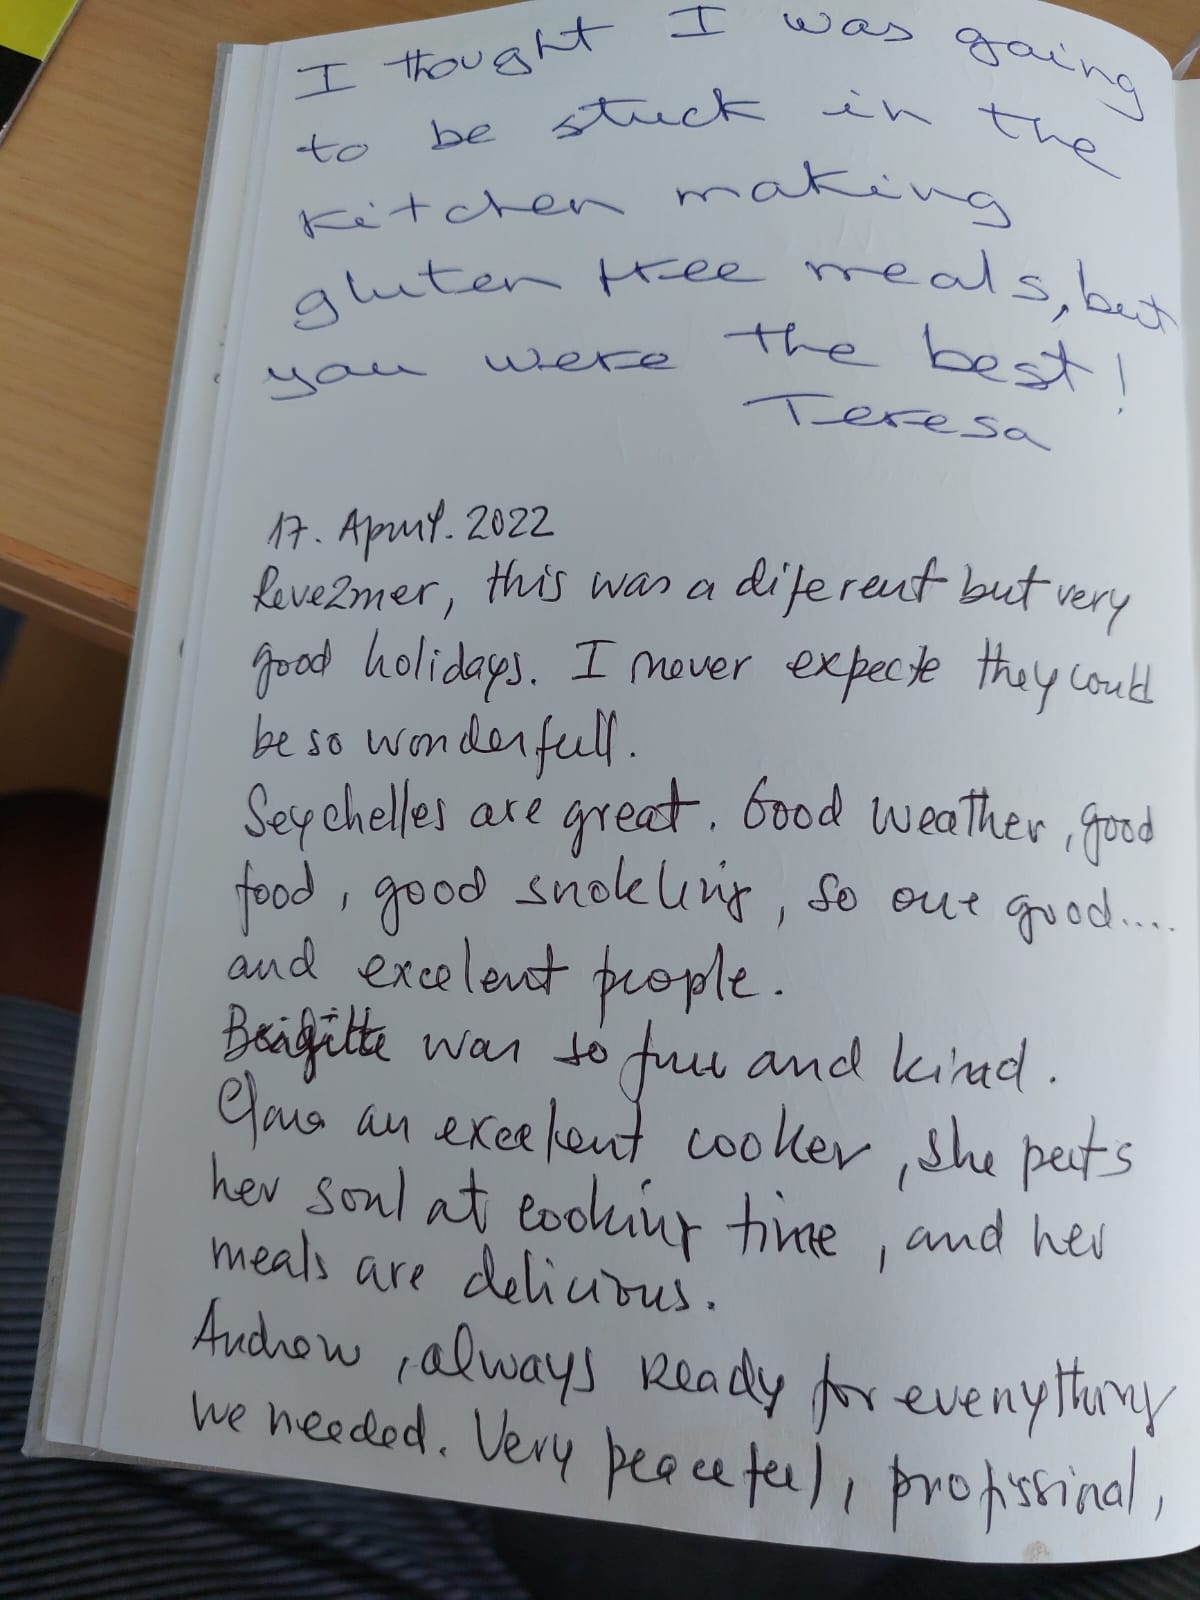 I thought I was going
to be stuck in the
kitchen making
gluten free meals, but
you were the best!
Teresa
17. April. 2022
Reve2mer, this was a diferent but very
good holidays. I never expecte they could
be so wonderfull.
Seychelles are great. Good weather, good
food, good snokling, so our good....
and excelent people.
Brigitte was so fun and kind.
an excelent cooker, she puts
her soul at cooking time, and her
meals are delicious.
Andrew, always ready for everything
we needed. Very peaceful, profissinal,